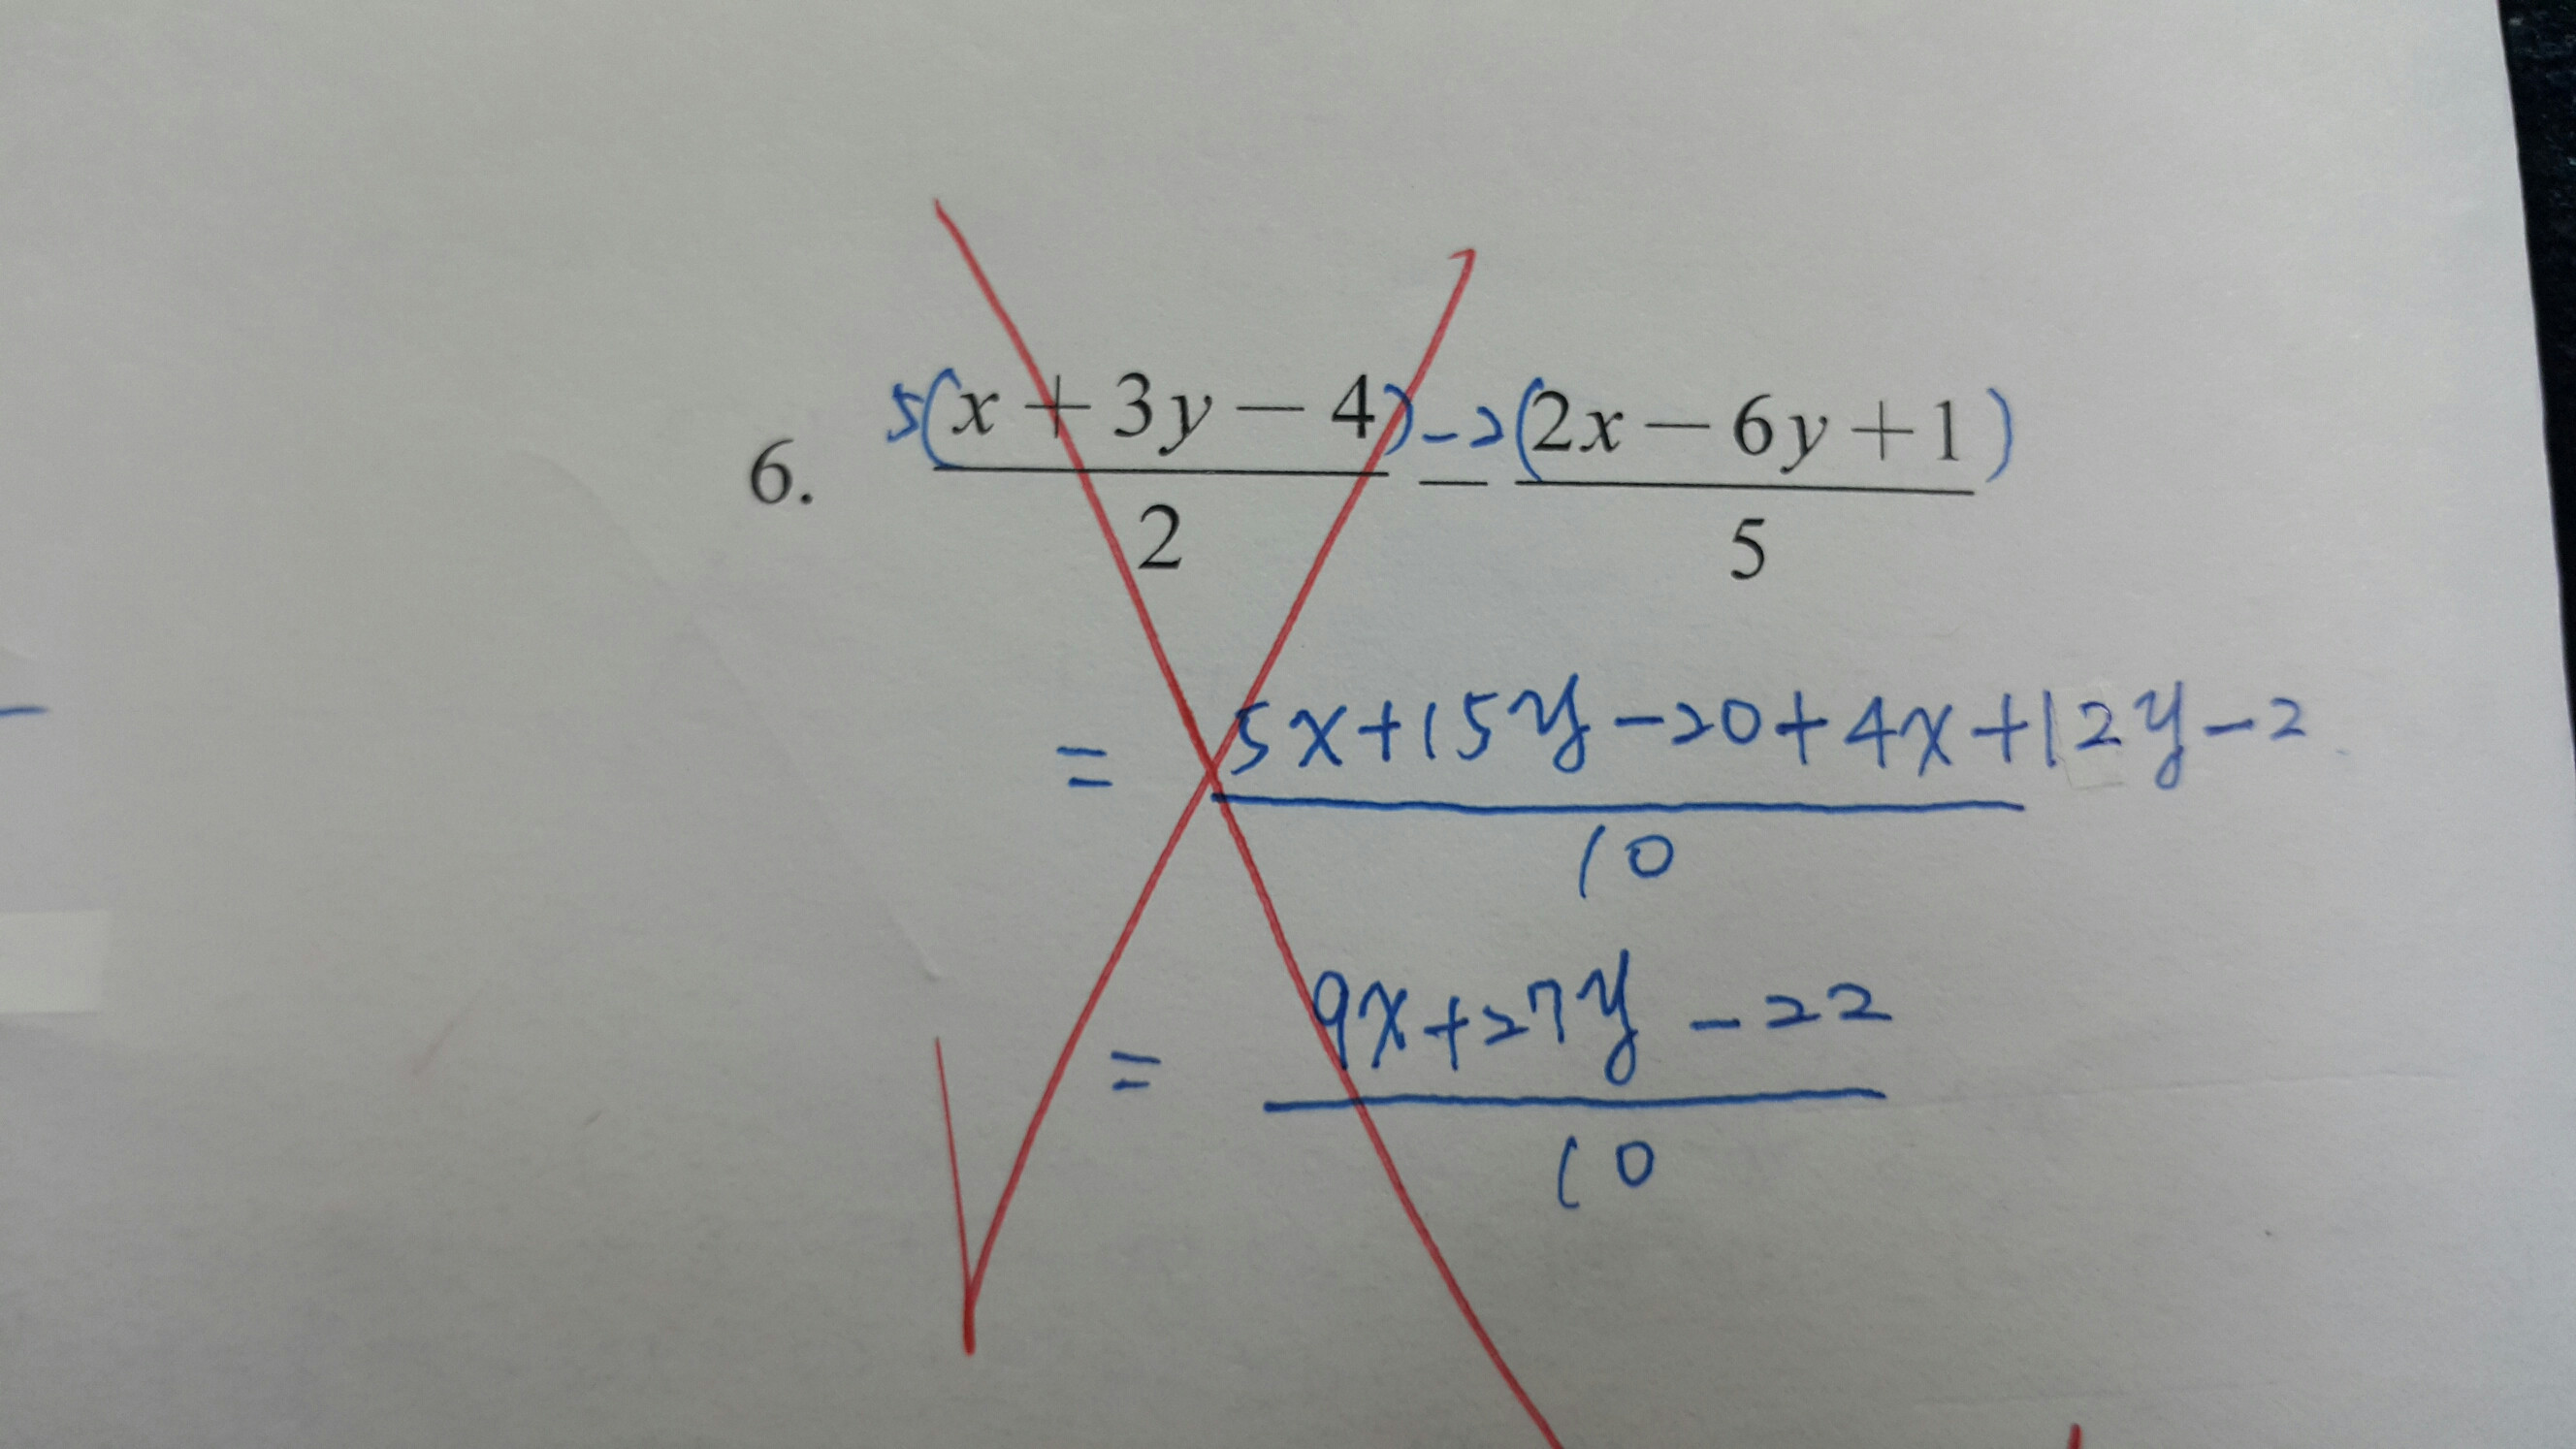 6. 5(x + 3y − 4) −2(2x − 6y + 1)
2 − 5
= 5x+15y−20+4x+12y−2
10
= 9x+27y −22
10